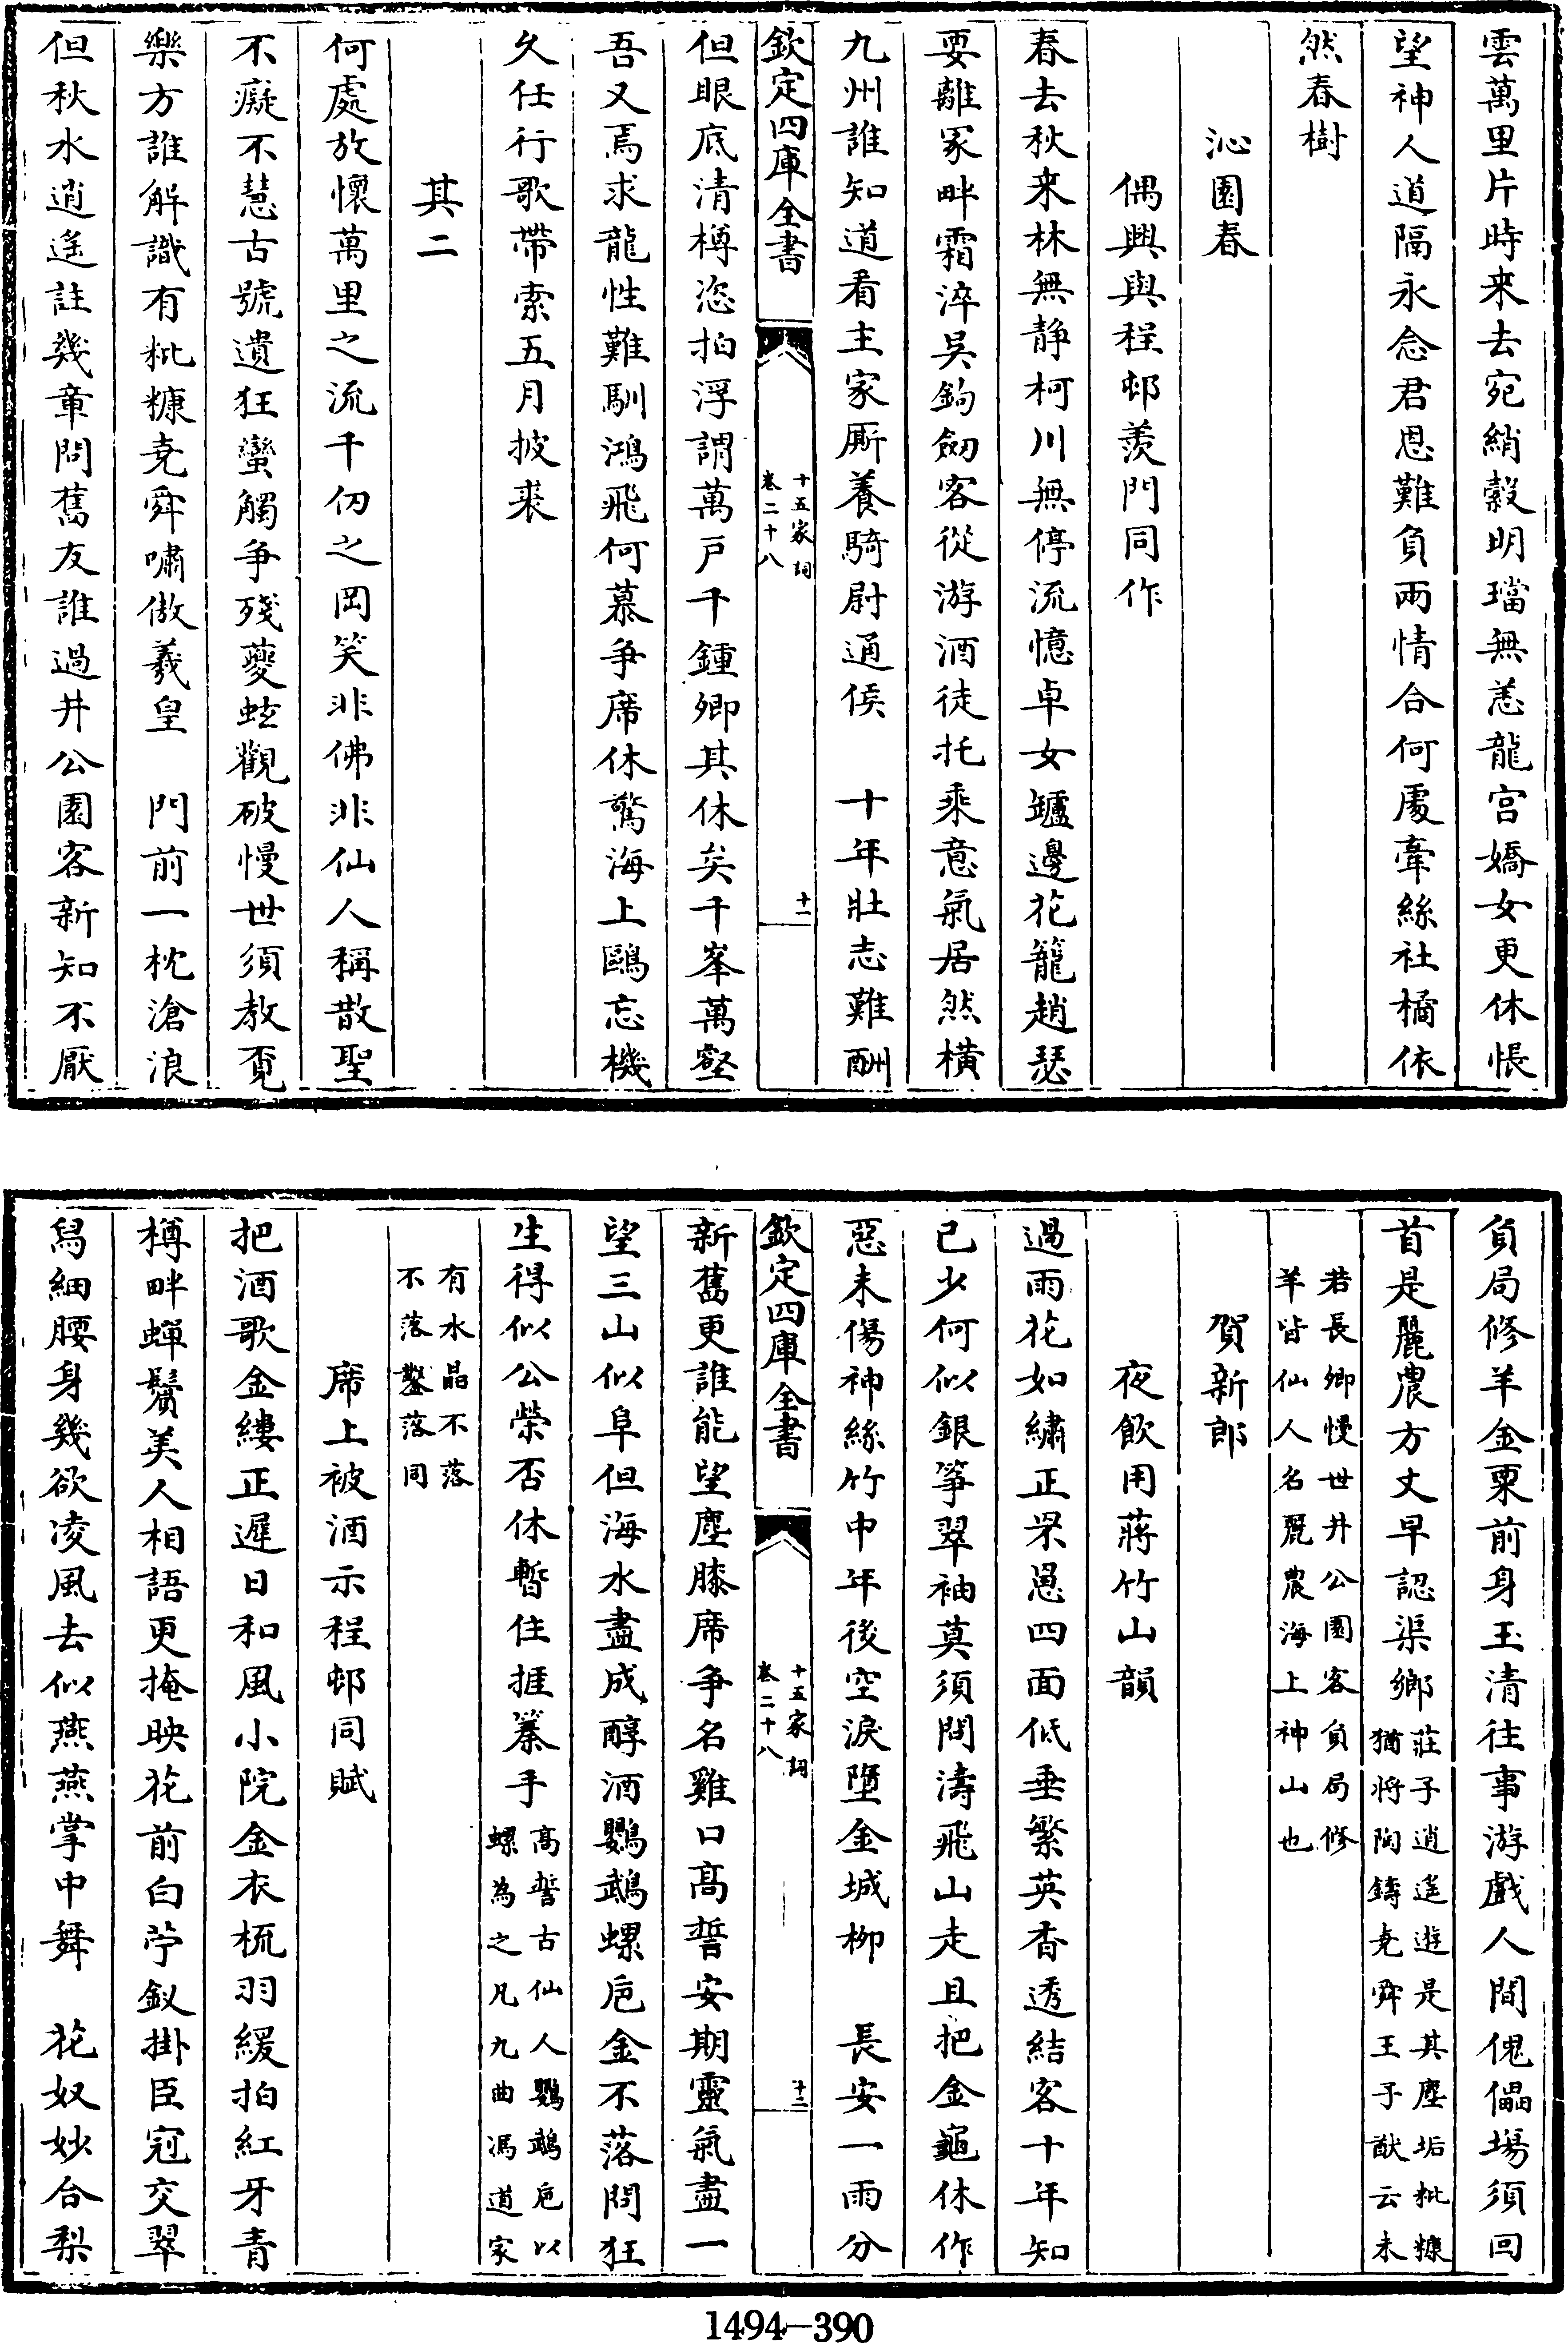 雲萬里片時来去宛綃縠明璫無恙龍宫嬌女更休悵
望神人道隔永念君恩難負兩情合何處牽絲社橘依
然春樹
沁園春
偶興與程邨羨門同作
春去秋来林無静柯川無停流憶卓女壚邊花籠趙瑟
要離冢畔霜淬吳鉤劒客從游酒徒托乘意氣居然横
九州誰知道看主家厮養騎尉通侯　十年壯志難酬
欽定四庫全書
十五家詞
卷二十八
十一
但眼底清樽恣拍浮謂萬戸千鍾卿其休矣千峯萬壑
吾又焉求龍性難馴鴻飛何慕争席休驚海上鷗忘機
久任行歌帶索五月披裘
其二
何處放懷萬里之流千仞之岡笑非佛非仙人稱散聖
不癡不慧古號遺狂蠻觸争殘夔蚿觀破慢世須教覓
樂方誰解識有粃糠尭舜嘯傲羲皇　門前一枕滄浪
但秋水逍遥註幾章問舊友誰過井公園客新知不厭
負局修羊金粟前身玉清往事游戲人間傀儡塲須回
首是麗農方丈早認渠鄉莊子逍遥遊是其塵垢粃糠
猶將陶鑄尭舜王子猷云未
若長卿慢世井公園客負局修
羊皆仙人名麗農海上神山也
賀新郎
夜飲用蔣竹山韻
過雨花如繡正罘罳四面低垂繁英香透結客十年知
己少何似銀箏翠袖莫須問濤飛山走且把金龜休作
惡未傷神絲竹中年後空淚墮金城柳　長安一雨分
欽定四庫全書
十五家詞
卷二十八
十二
新舊更誰能望塵膝席争名雞口髙誓安期靈氣盡一
望三山似阜但海水盡成醇酒鸚鵡螺巵金不落問狂
生得似公榮否休暫住摧篆手髙誓古仙人鸚鵡巵以
螺為之凡九曲馮道家
有水晶不落
不落鑿落同
席上被酒示程邨同賦
把酒歌金縷正遲日和風小院金衣梳羽緩拍紅牙青
樽畔蟬鬢美人相語更掩映花前白苧釵掛臣冠交翠
舄細腰身幾欲凌風去似燕燕掌中舞　花奴妙合梨
1494—390